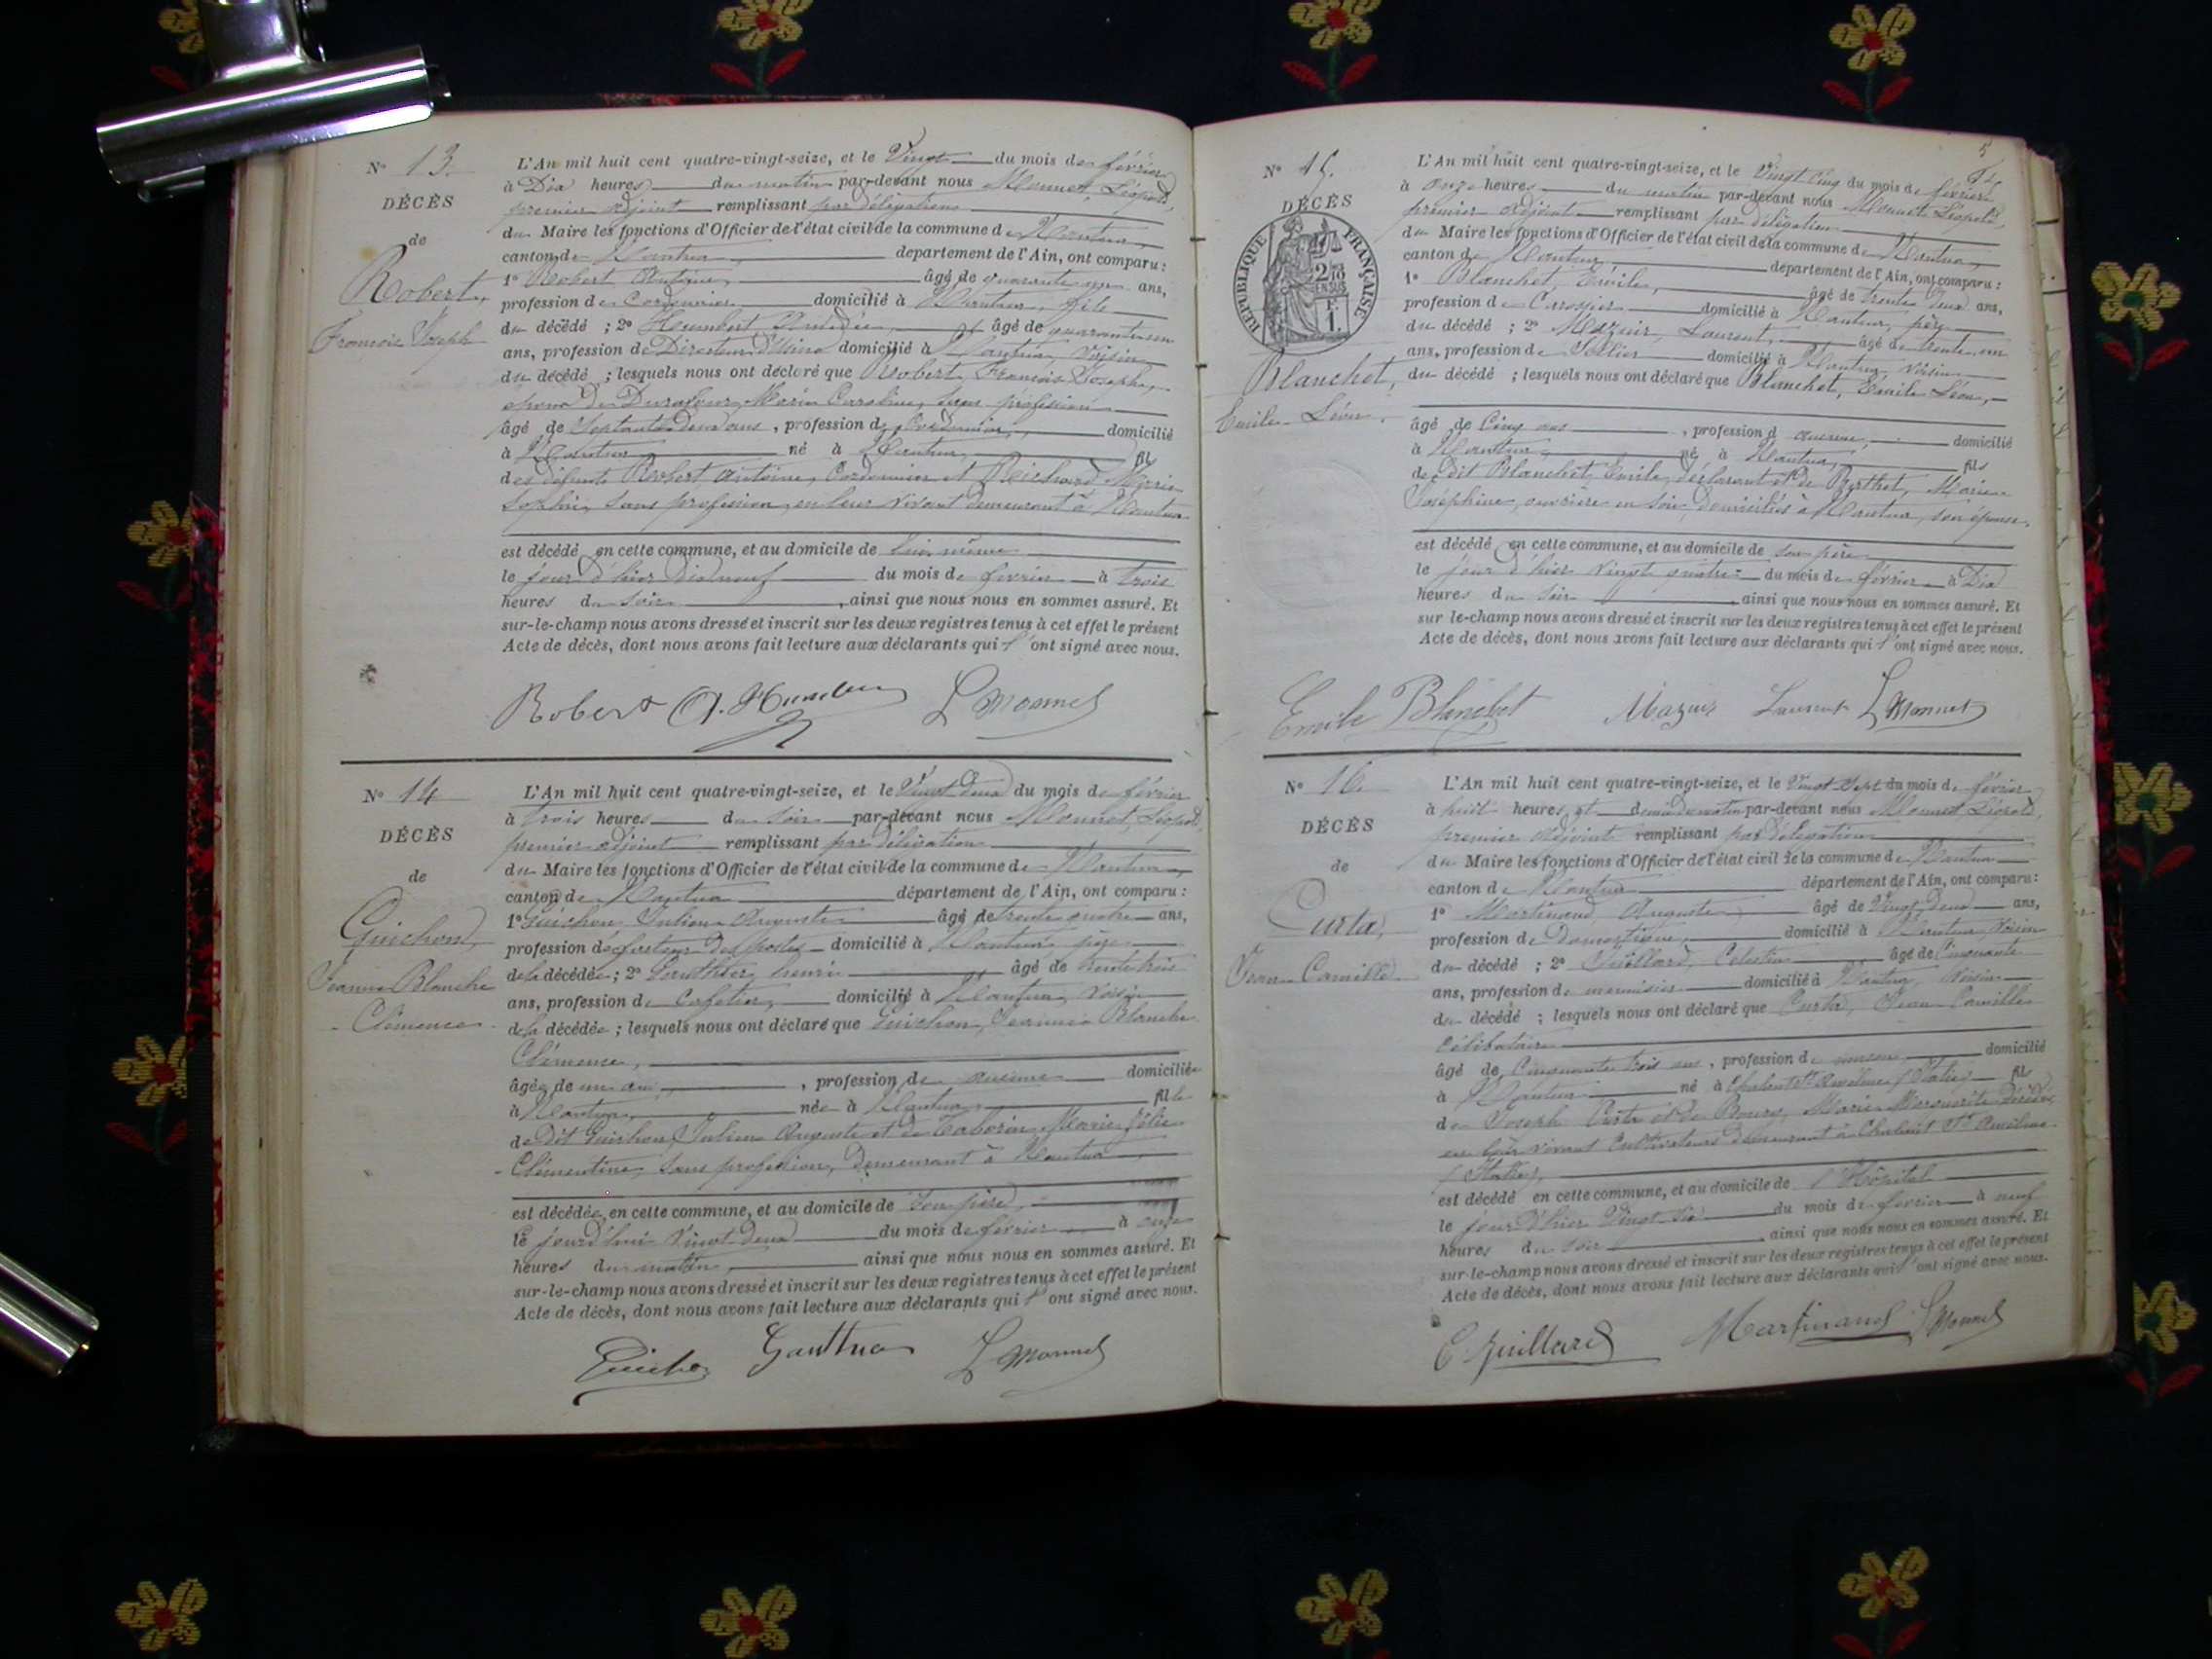 N° 13.
DÉCÈS
de
Robert,
François Joseph
L'An mil huit cent quatre-vingt-seize, et le Vingt du mois de février
à Dix heures du matin par-devant nous Monnet, Léopold,
premier adjoint remplissant par délégation
du Maire les fonctions d'Officier de l'état civil de la commune de Nantua,
canton de Nantua, département de l'Ain, ont comparu :
1° Robert Antoine, âgé de quarante ans,
profession de Cordonnier domicilié à Nantua, fils
du décédé ; 2° Humbert Amédée, âgé de quarante un
ans, profession de Directeur d'Usine domicilié à Nantua, Voisin
du décédé ; lesquels nous ont déclaré que Robert, François Joseph,
époux de Marie Caroline, sans profession
âgé de Septante deux ans, profession de Cordonnier, domicilié
à Nantua né à Nantua, fils
des défunts Robert Antoine, Cordonnier et Richard Marie
Sophie, sans profession, en leur vivant demeurant à Nantua
est décédé en cette commune, et au domicile de lui même
le jour d'hier Dix neuf du mois de février à trois
heures du soir, ainsi que nous nous en sommes assuré. Et
sur-le-champ nous avons dressé et inscrit sur les deux registres tenus à cet effet le présent
Acte de décès, dont nous avons fait lecture aux déclarants qui l'ont signé avec nous.
Robert A. Humbert L Monnet
N° 14
DÉCÈS
de
Guichon,
Jeanne Blanche
- Clémence -
L'An mil huit cent quatre-vingt-seize, et le Vingt Deux du mois de février
à trois heures du soir par-devant nous Monnet, Léopold,
premier adjoint remplissant par délégation
du Maire les fonctions d'Officier de l'état civil de la commune de Nantua,
canton de Nantua département de l'Ain, ont comparu :
1° Guichon Julien Auguste âgé de trente quatre ans,
profession de facteur des postes domicilié à Nantua père
de la décédée ; 2° Gauthier, henri âgé de trente trois
ans, profession de Cafetier, domicilié à Nantua, Voisin
de la décédée ; lesquels nous ont déclaré que Guichon, Jeanne Blanche
Clémence,
âgée de un an, profession de aucune domiciliée
à Nantua, née à Nantua, fille
de dit Guichon Julien Auguste et de Marie Félie
Clémentine, sans profession, demeurant à Nantua
est décédée en cette commune, et au domicile de son père,
le jourd'hui Vingt Deux du mois de février à onze
heures du matin, ainsi que nous nous en sommes assuré. Et
sur-le-champ nous avons dressé et inscrit sur les deux registres tenus à cet effet le présent
Acte de décès, dont nous avons fait lecture aux déclarants qui l'ont signé avec nous.
Guichon Gauthier L Monnet
5
N° 15.
DÉCÈS
RÉPUBLIQUE FRANÇAISE
2/10 EN SUS
1 F.
Blanchet,
Emile Léon.
L'An mil huit cent quatre-vingt-seize, et le Vingt Cinq du mois de février
à onze heures du matin par-devant nous Monnet Léopold,
premier adjoint remplissant par délégation
du Maire les fonctions d'Officier de l'état civil de la commune de Nantua,
canton de Nantua, département de l'Ain, ont comparu :
1° Blanchet, Emile, âgé de trente deux ans,
profession de Carrossier domicilié à Nantua, père
du décédé ; 2° Mazuir, Laurent, âgé de trente un
ans, profession de Sellier domicilié à Nantua, Voisin
du décédé ; lesquels nous ont déclaré que Blanchet, Emile Léon,
âgé de Cinq ans, profession d aucune, domicilié
à Nantua né à Nantua, fils
de dit Blanchet Emile, déclarant et de Berthet, Marie
Joséphine, ouvrière en soie, domiciliés à Nantua, son épouse.
est décédé en cette commune, et au domicile de son père
le jour d'hier Vingt quatre du mois de février à Dix
heures du soir ainsi que nous nous en sommes assuré. Et
sur le-champ nous avons dressé et inscrit sur les deux registres tenus à cet effet le présent
Acte de décès, dont nous avons fait lecture aux déclarants qui l'ont signé avec nous.
Emile Blanchet Mazuir Laurent L Monnet
N° 16.
DÉCÈS
de
Curta,
Jean Camille
L'An mil huit cent quatre-vingt-seize, et le Vingt Sept du mois de février
à huit heures et demie du matin par-devant nous Monnet Léopold,
premier adjoint remplissant par délégation
du Maire les fonctions d'Officier de l'état civil de la commune de Nantua
canton de Nantua département de l'Ain, ont comparu :
1° Martinand, Auguste, âgé de Vingt Deux ans,
profession de Domestique, domicilié à Nantua, Voisin
du décédé ; 2° Juillard, Celestin âgé de Cinquante
ans, profession de menuisier domicilié à Nantua, Voisin
du décédé ; lesquels nous ont déclaré que Curta, Jean Camille
Célibataire
âgé de Cinquante trois ans, profession de domicilié
à Nantua né à Chalant St Anselme (Italie) fils
de Joseph Curta et de Bourg, Marie Marguerite Décédés,
en leur vivant Cultivateurs demeurant à Chalant St Anselme
(Italie),
est décédé en cette commune, et au domicile de l'Hôpital
le jour d'hier Vingt Six du mois de février à neuf
heures du soir ainsi que nous nous en sommes assuré. Et
sur-le-champ nous avons dressé et inscrit sur les deux registres tenus à cet effet le présent
Acte de décès, dont nous avons fait lecture aux déclarants qui l'ont signé avec nous.
C. Juillard Martinand L Monnet